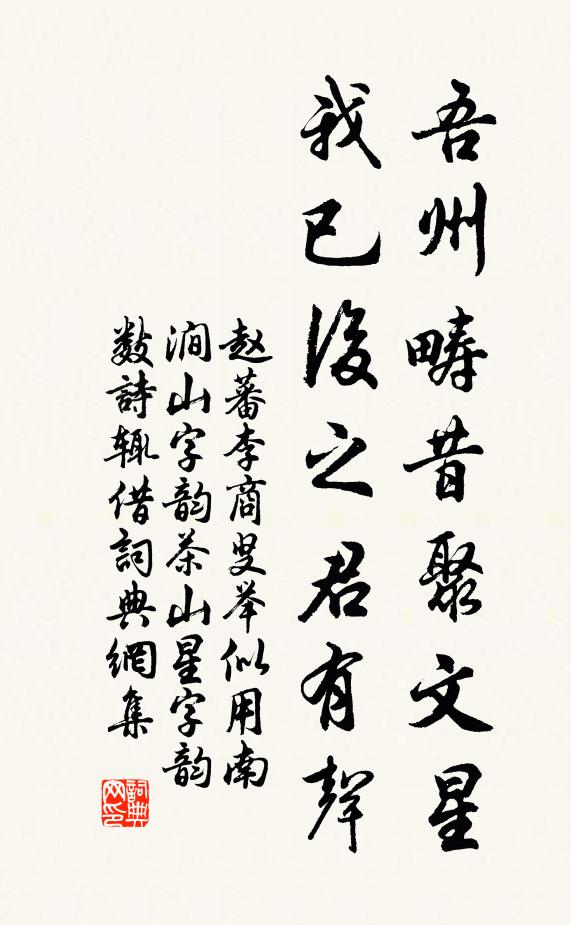 吾州畴昔聚文星
我已後之君有聲
赵蕃李商叟举似用南
澗山字韵茶山星字韵
数詩辄借詞典網集
詞典
网印